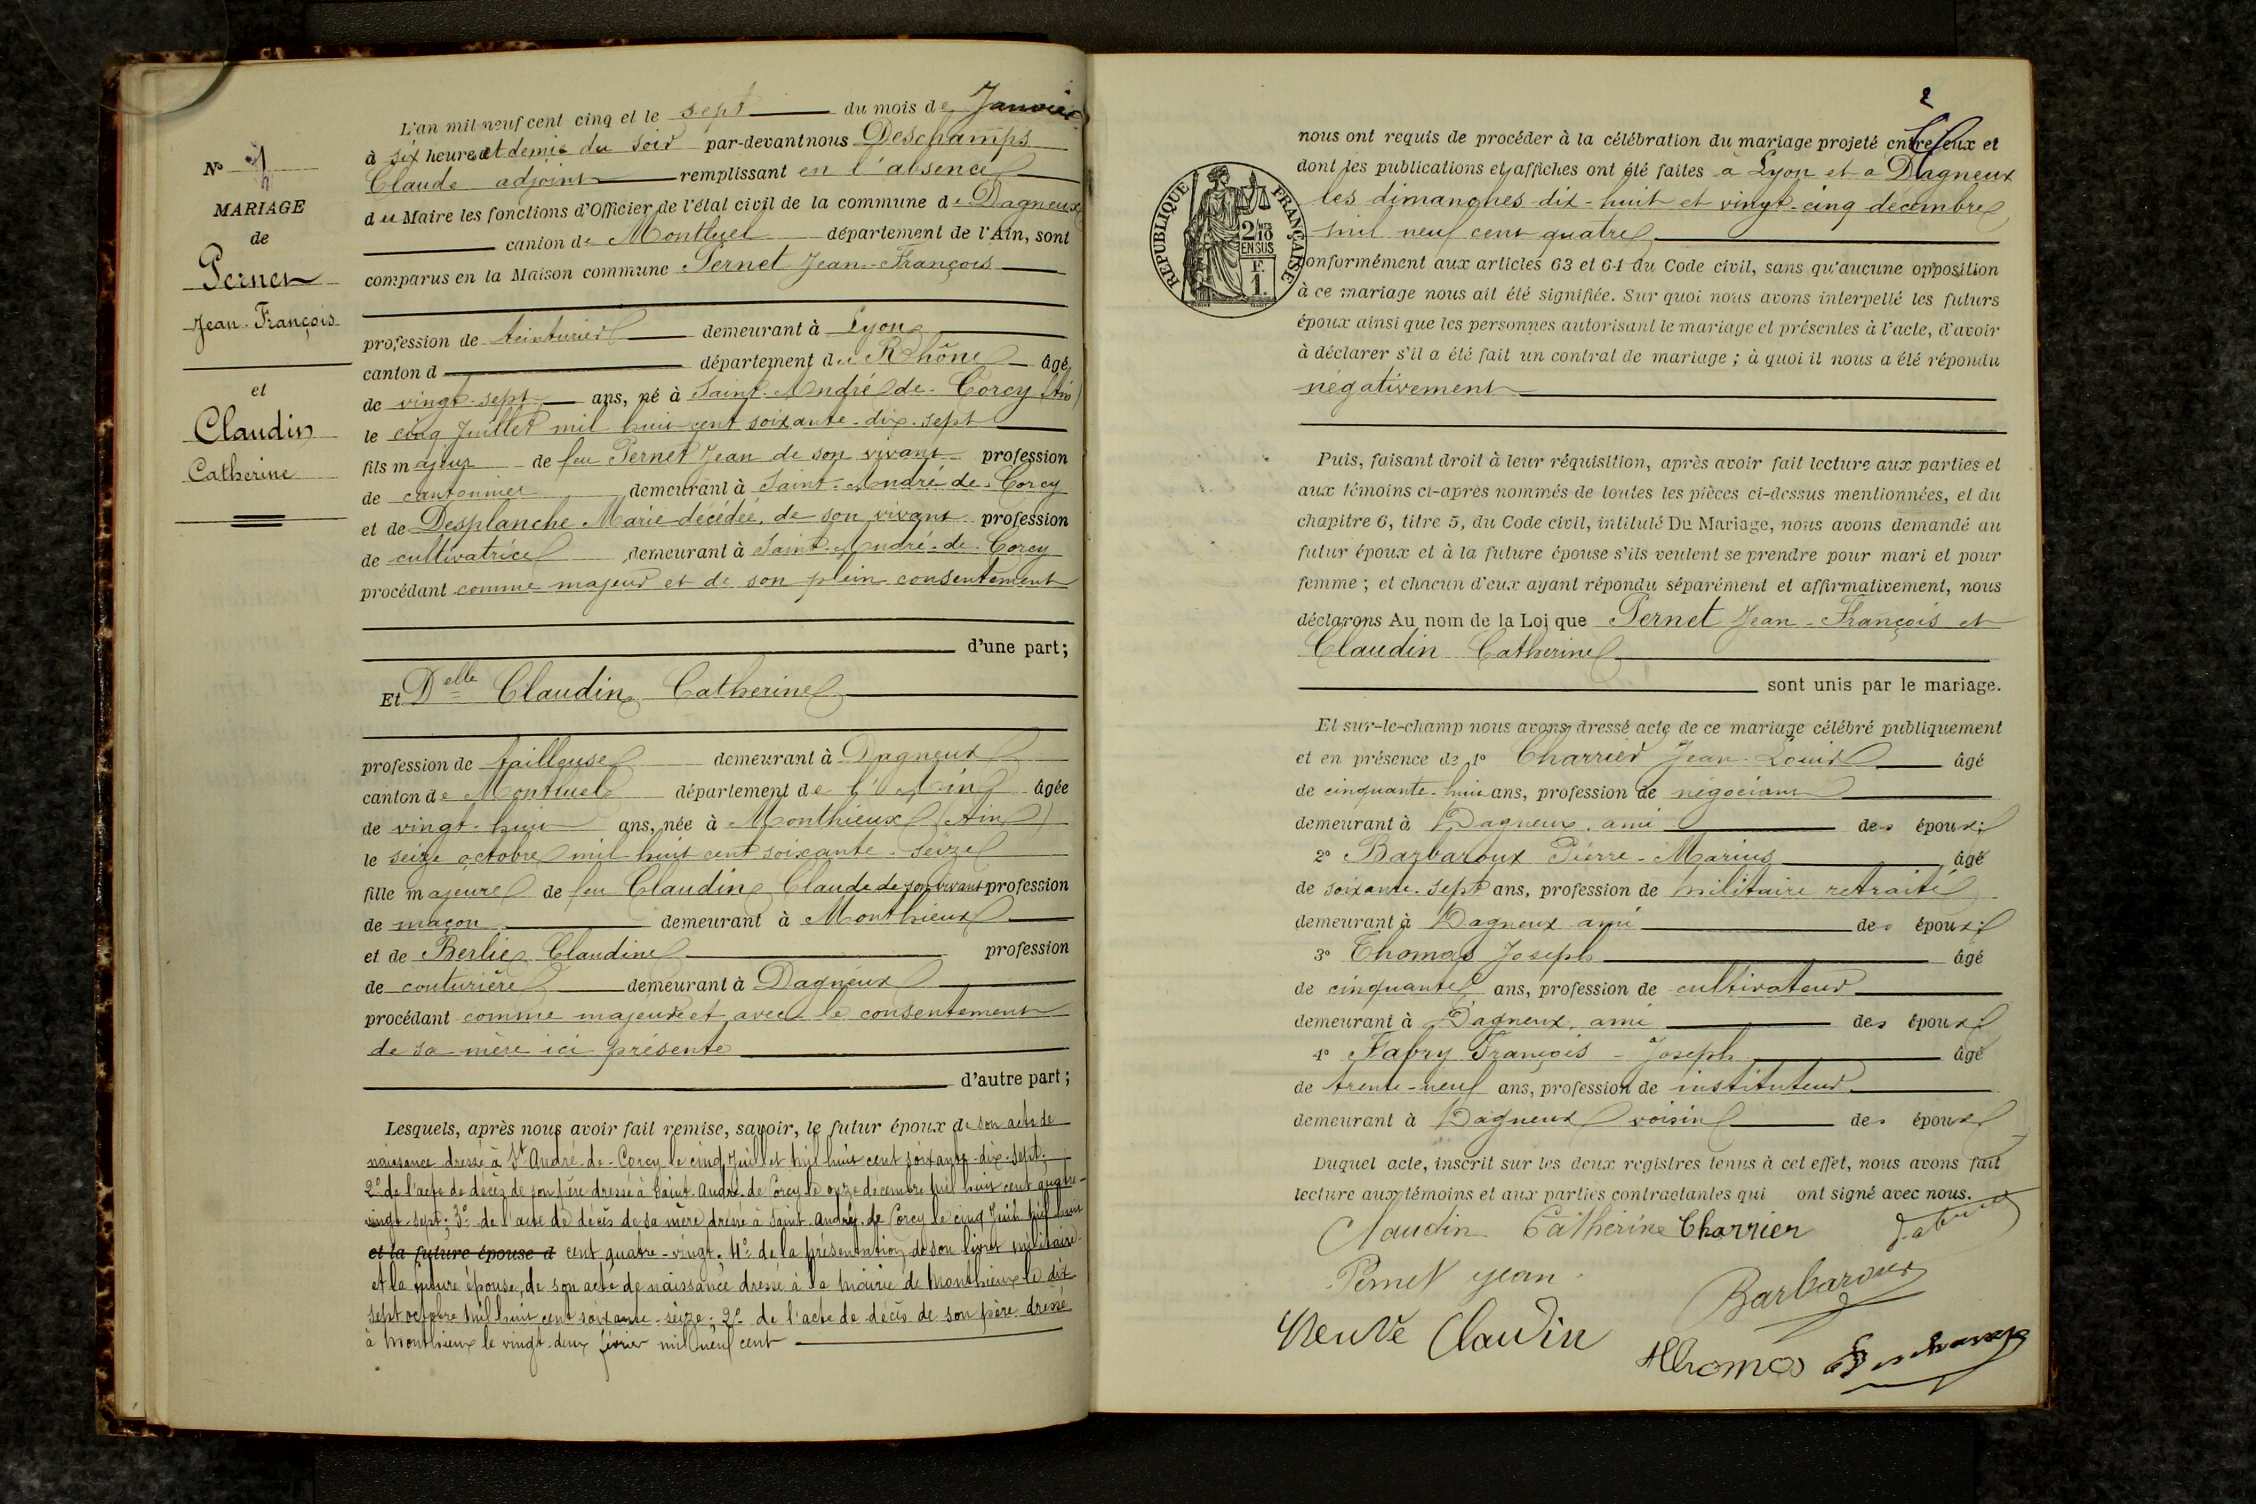 N° 1
MARIAGE
de
Pernet
Jean-François
et
Claudin
Catherine
L'an mil neuf cent cinq et le sept du mois de Janvier
à six heures et demie du soir par-devant nous Deschamps
Claude adjoint remplissant en l'absence
du Maire les fonctions d'Officier de l'état civil de la commune de Dagneux
canton de Montluel département de l'Ain, sont
comparus en la Maison commune Pernet Jean-François
profession de teinturier demeurant à Lyon
canton d département du Rhône âgé
de vingt-sept ans, né à Saint-André-de-Corcy (Ain)
le cinq Juillet mil huit cent soixante-dix-sept
fils majeur de feu Pernet Jean de son vivant profession
de cantonnier demeurant à Saint-André-de-Corcy
et de Desplanche Marie décédée, de son vivant profession
de cultivatrice demeurant à Saint-André-de-Corcy
procédant comme majeur et de son plein consentement
d'une part;
Et Delle Claudin Catherine
profession de tailleuse demeurant à Dagneux
canton de Montluel département de l'Ain âgée
de vingt-huit ans, née à Monthieux (Ain)
le seize octobre mil huit cent soixante-seize
fille majeure de feu Claudin Claude de son vivant profession
de maçon demeurant à Monthieux
et de Berlie Claudine profession
de couturière demeurant à Dagneux
procédant comme majeure et avec le consentement
de sa mère ici présente
d'autre part;
Lesquels, après nous avoir fait remise, savoir, le futur époux de son acte de
naissance dressé à St André-de-Corcy le cinq Juillet mil huit cent soixante-dix-sept;
2° de l'acte de décès de son père dressé à Saint-André-de-Corcy le onze décembre mil huit cent quatre-
vingt-sept; 3° de l'acte de décès de sa mère dressé à Saint-André-de-Corcy le cinq Juin mil huit
et la future épouse d cent quatre-vingt. 4° de la présentation de son livret militaire
et la future épouse, de son acte de naissance dressé à la mairie de Monthieux le dix
sept octobre mil huit cent soixante-seize; 2° de l'acte de décès de son père dressé
à Monthieux le vingt-deux février mil neuf cent
2
nous ont requis de procéder à la célébration du mariage projeté entre eux et
dont les publications et affiches ont été faites à Lyon et à Dagneux
les dimanches dix-huit et vingt-cinq décembre
mil neuf cent quatre
RÉPUBLIQUE FRANÇAISE
2/10
EN SUS
F.
1.
conformément aux articles 63 et 64 du Code civil, sans qu'aucune opposition
à ce mariage nous ait été signifiée. Sur quoi nous avons interpellé les futurs
époux ainsi que les personnes autorisant le mariage et présentes à l'acte, d'avoir
à déclarer s'il a été fait un contrat de mariage; à quoi il nous a été répondu
négativement
Puis, faisant droit à leur réquisition, après avoir fait lecture aux parties et
aux témoins ci-après nommés de toutes les pièces ci-dessus mentionnées, et du
chapitre 6, titre 5, du Code civil, intitulé Du Mariage, nous avons demandé au
futur époux et à la future épouse s'ils veulent se prendre pour mari et pour
femme; et chacun d'eux ayant répondu séparément et affirmativement, nous
déclarons Au nom de la Loi que Pernet Jean-François et
Claudin Catherine
sont unis par le mariage.
Et sur-le-champ nous avons dressé acte de ce mariage célébré publiquement
et en présence de 1° Charrier Jean-Louis âgé
de cinquante-huit ans, profession de négociant
demeurant à Dagneux, ami des époux;
2° Barbaroux Pierre-Marius âgé
de soixante-sept ans, profession de militaire retraité
demeurant à Dagneux ami des époux;
3° Thomas Joseph âgé
de cinquante ans, profession de cultivateur
demeurant à Dagneux, ami des époux;
4° Fabry François-Joseph âgé
de trente-neuf ans, profession de instituteur
demeurant à Dagneux voisin des époux
Duquel acte, inscrit sur les deux registres tenus à cet effet, nous avons fait
lecture aux témoins et aux parties contractantes qui ont signé avec nous.
Claudin Catherine Charrier
Pernet Jean
Barbaroux
Veuve Claudin
Thomas Deschamps